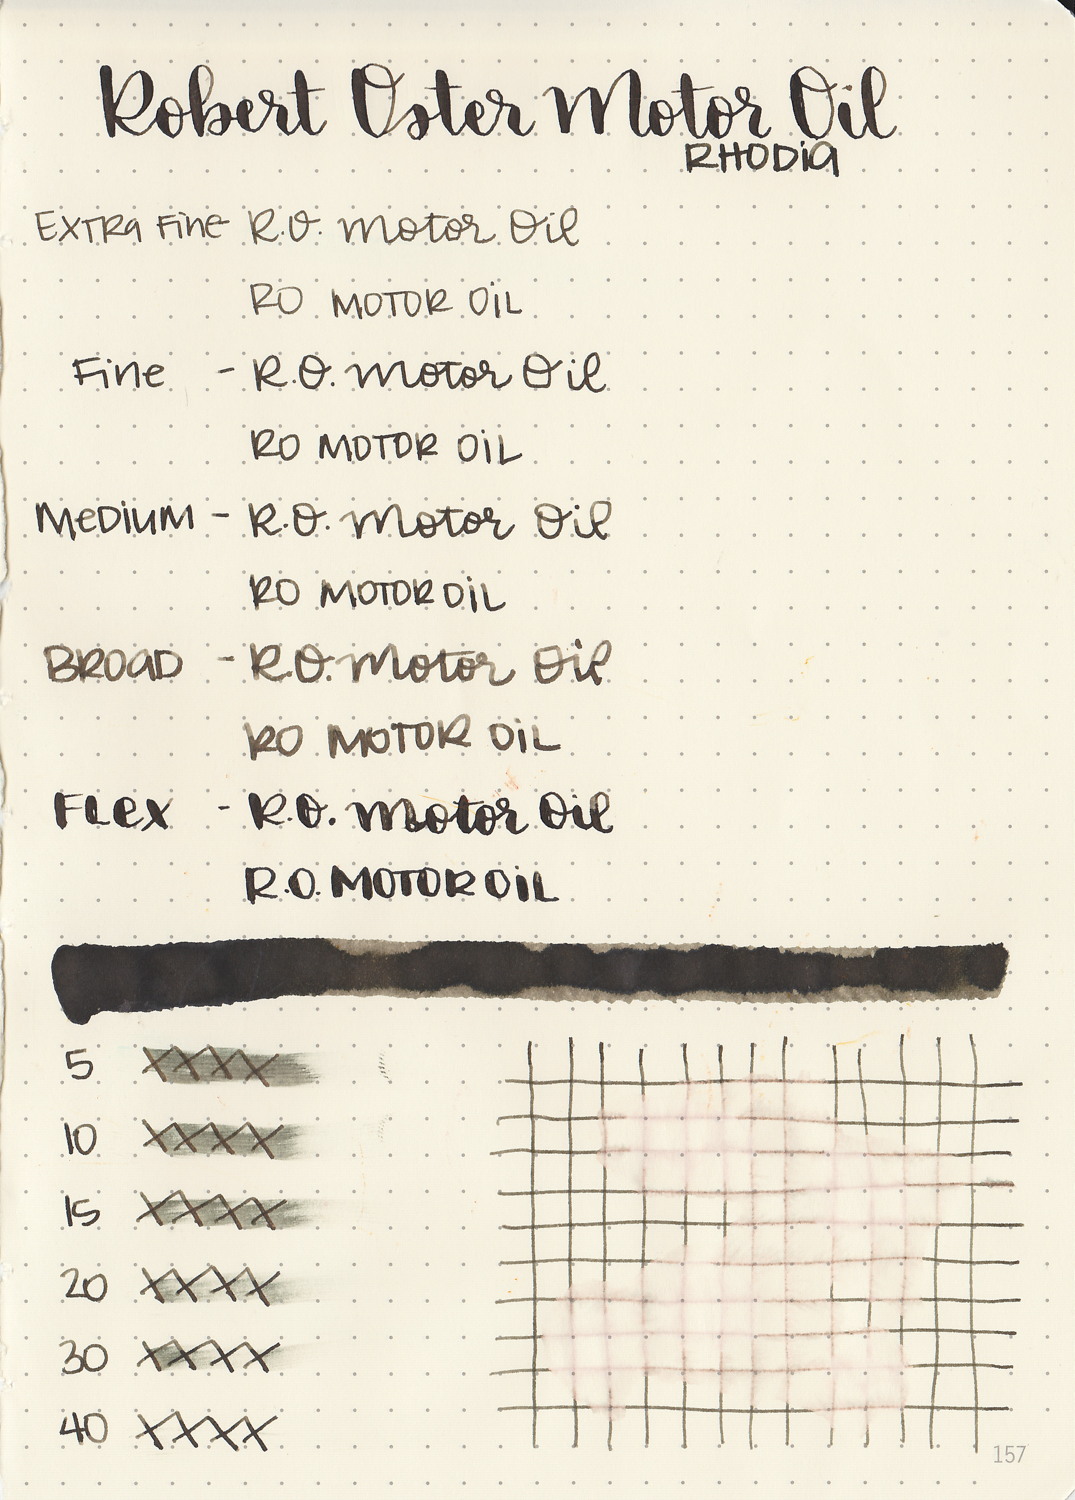 Robert Oster Motor Oil
RHODIA
EXTRA FINE R.O. Motor Oil
RO MOTOR OIL
Fine - R.O. Motor Oil
RO MOTOR OIL
MEDIUM - R.O. Motor Oil
RO MOTOR OIL
BROAD - R.O. Motor Oil
RO MOTOR OIL
FLEX - R.O. Motor Oil
R.O. MOTOR OIL
5 XXXX
10 XXXX
15 XXXX
20 XXXX
30 XXXX
40 XXXX
157